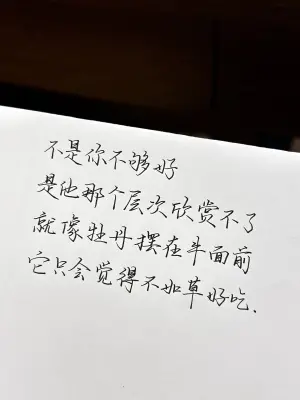 不是你不够好
是他那个层次欣赏不了
就像牡丹摆在牛面前
它只会觉得不如草好吃.